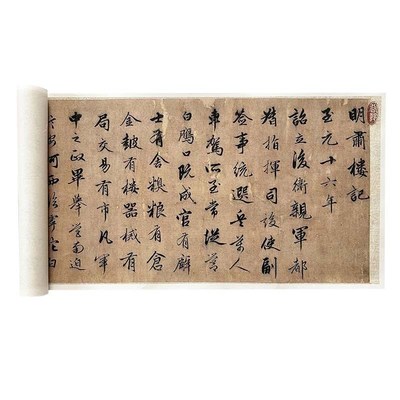 明肅樓記
至元十六年
詔立後衛親軍都
揩指揮司設使副
僉事統選兵萬人
車駕所至常從營
白鴈口既成官有廨
士有舍糗粮有倉
金皷有樓器械有
局交易有市凡軍
中之政畢舉營南迫